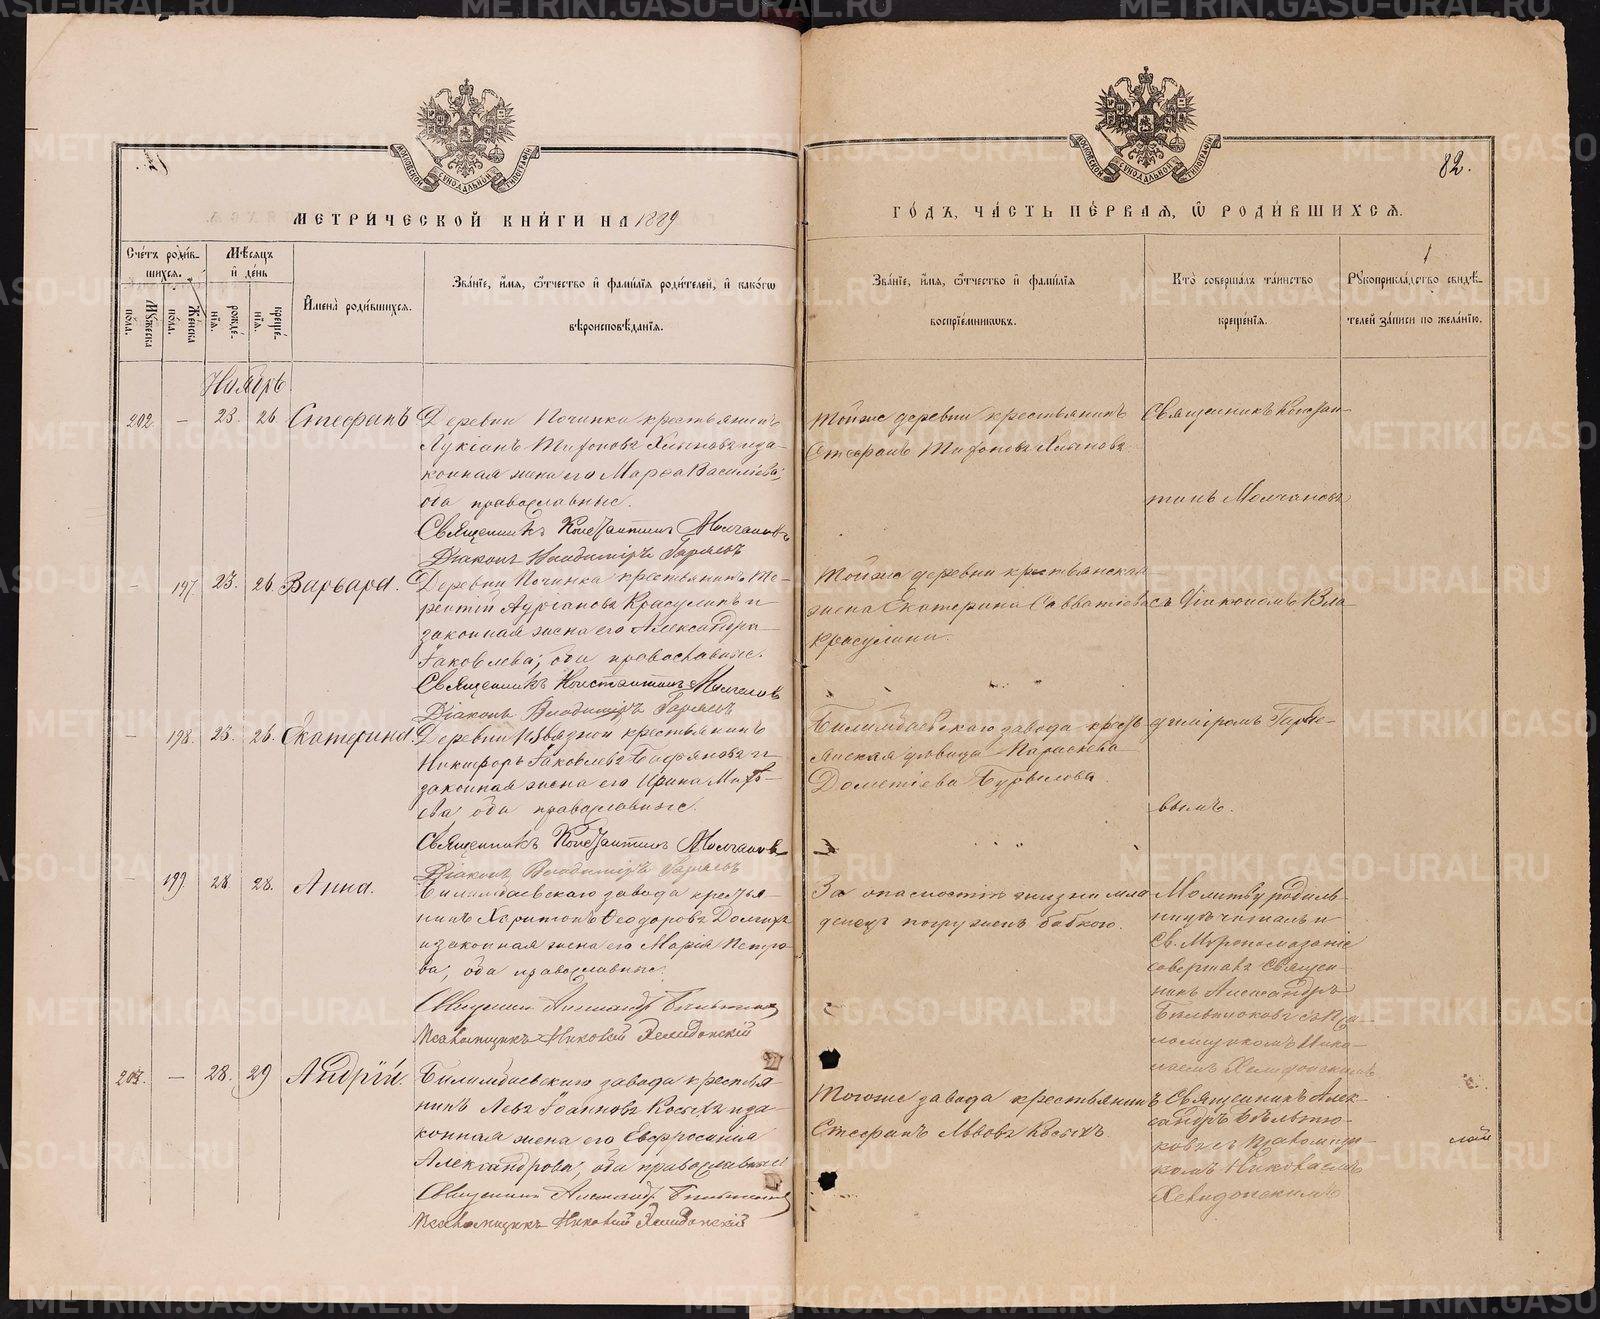 82.
МЕТРИ́ЧЕСКОЙ КНИ́ГИ НА 1889
ГО́ДЪ, ЧА́СТЬ ПЕ́РВАЯ, Ѿ РОДИ́ВШИХСѦ.
Сче́тъ роди́в-
шихсѧ.
Мѣсѧцъ
и҆ де́нь
Мꙋ́жеска по́ла.
Же́нска по́ла.
рожде́-
нїѧ.
креще́-
нїѧ.
И҆мена̀ роди́вшихсѧ.
Зва́нїе, и҆́мѧ, ѻ҆́тчество и҆ фамѝлїѧ роди́телей, и҆ како́гѡ
вѣроисповѣ́данїѧ.
Зва́нїе, и҆́мѧ, ѻ҆́тчество и҆ фами́лїѧ
воспрїе́мникѡвъ.
Кто̀ соверша́лъ та́инство
креще́нїѧ.
Рꙋкоприкла́дство свидѣ́-
телей за́писи по жела́нїю.
Ноябрь
202. — 23. 26. Стефанъ
Деревни Починка крестьянинъ
Лукіанъ
законная жена его Марѳа Васильева;
оба православные.
Священникъ Константинъ Молчановъ
Діаконъ Владиміръ Гаряевъ
Тойже деревни крестьянинъ
Стефанъ
Священникъ Констан-
тинъ Молчановъ
— 197. 23. 26. Варвара.
Деревни Починка крестьянинъ Те-
рентій Красулинъ и
законная жена его Александра
Іаковлева; оба православные.
Священникъ Константинъ Молчановъ
Діаконъ Владиміръ Гаряевъ
Тойже деревни крестьянская
жена Екатерина Савватіева
Красулина.
съ Діакономъ Вла-
— 198. 23. 26. Екатерина
Деревни Извѣзной крестьянинъ
Никифоръ Іаковлевъ и
законная жена его Ирина
оба православные.
Священникъ Константинъ Молчановъ
Діаконъ Владиміръ Гаряевъ
Билимбаевскаго завода кресть-
янская вдова Параскева
Дометіева
диміромъ Гаряе-
вымъ.
— 199. 28 28. Анна.
Билимбаевскаго завода крестья-
нинъ Харитонъ Ѳеодоровъ
и законная жена его Марія Петро-
ва; оба православные.
Священникъ Александръ
Псаломщикъ Николай Хелидонскій
За опасностію жизни мла
денецъ погруженъ бабкою.
Молитву родиль-
ницѣ читалъ и
Св. Мѵропомазаніе
совершалъ Священ-
никъ Александръ
съ Пса-
ломщикомъ Нико-
лаемъ Хелидонскимъ
203. — 28. 29 Андрей.
Билимбаевскаго завода крестья-
нинъ Левъ Іоанновъ Косыхъ и за-
конная жена его Евфросинія
Александрова; оба православные
Священникъ Александръ
Псаломщикъ Николай Хелидонскій
Тогоже завода крестьянинъ
Стефанъ Львовъ Косыхъ.
Священникъ Алек-
сандръ
съ Псаломщи-
комъ Николаемъ
Хелидонскимъ